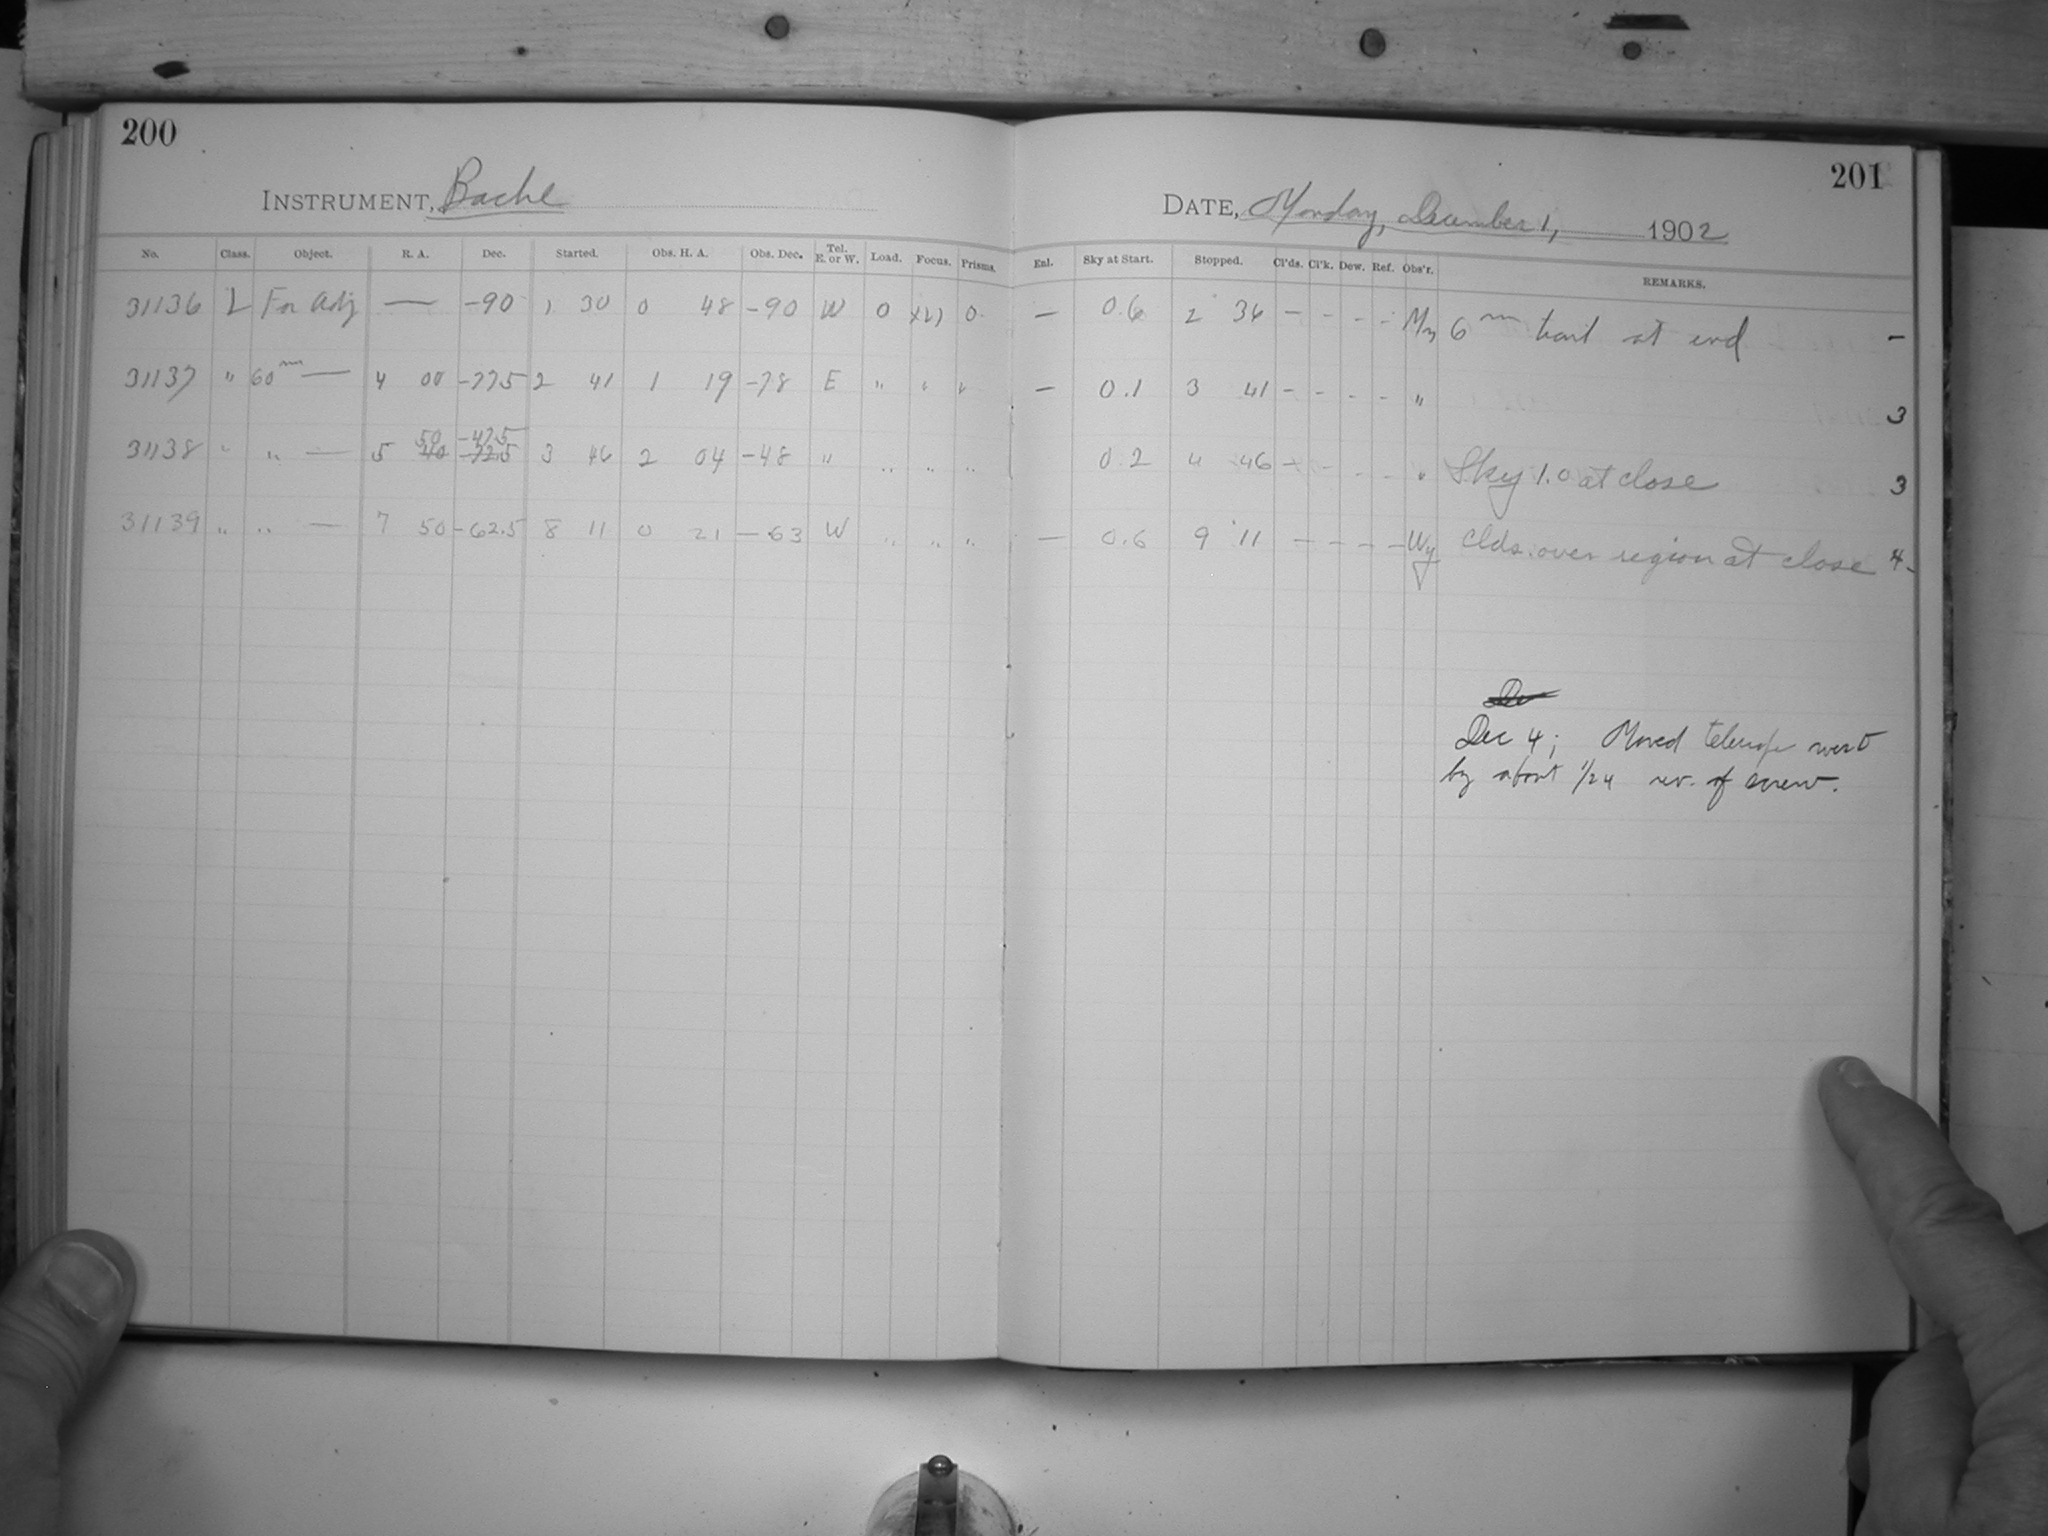 200
INSTRUMENT, Bache
No. Class. Object. R. A. Dec. Started. Obs. H. A. Obs. Dec. Tel. E. or W. Load. Focus. Prisms.
31136 L For Adj — -90 1 30 0 48 -90 W 0 0
31137 " 60m — 4 00 -77.5 2 41 1 19 -78 E " " "
31138 " " — 5 50 40 -47.5 -72.5 3 46 2 04 -48 " " " "
31139 " " — 7 50 -62.5 8 11 0 21 -63 W " " "
201
DATE, Monday, December 1, 1902
Enl. Sky at Start. Stopped. Cl'ds. Cl'k. Dew. Ref. Obs'r. REMARKS.
— 0.6 2 36 - - - - My 6m trail at end -
— 0.1 3 41 - - - - " 3
0.2 4 46 - - - - " Sky 1.0 at close 3
— 0.6 9 11 - - - - Wy Clds. over region at close 4-
Dec 4; Moved telescope west
by about 1/24 rev. of screw.